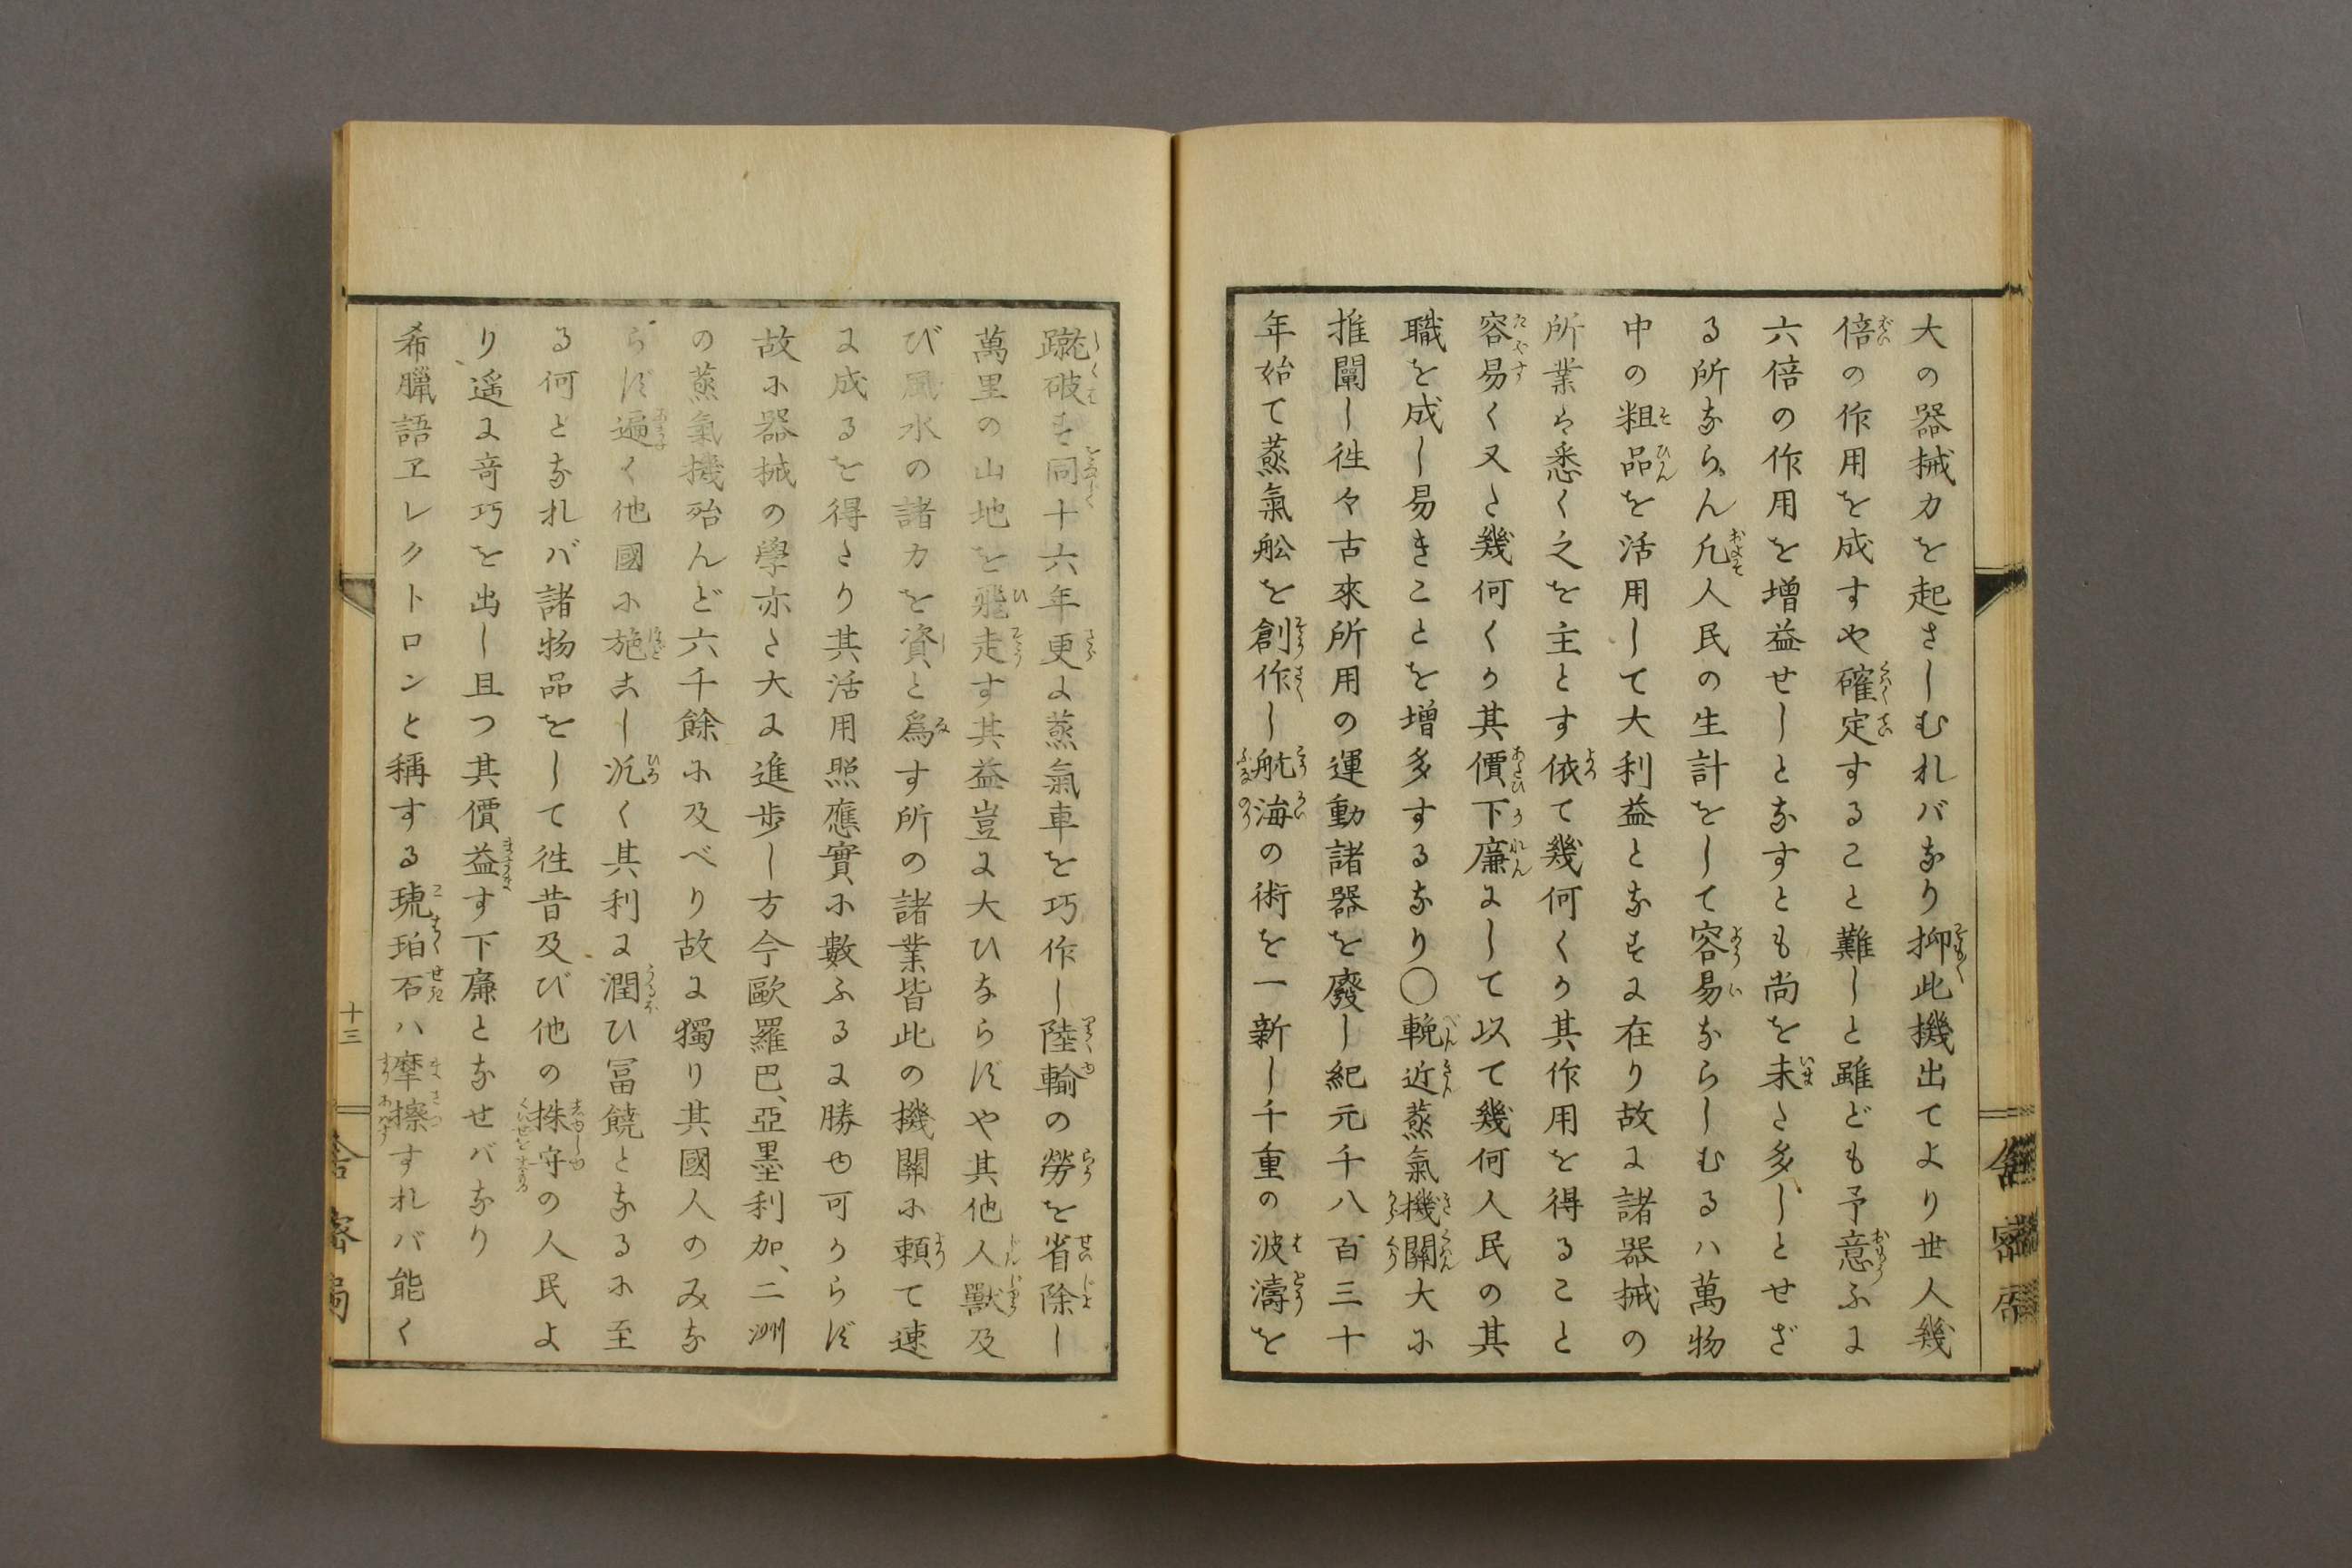 大の器械力を起さしむれバなり抑此機出てより世人幾
倍の作用を成すや確定すること難しと雖ども予意ふに
六倍の作用を増益せしとなすとも尚を未た多しとせざ
る所ならん凡人民の生計をして容易ならしむるハ萬物
中の粗品を活用して大利益となすに在り故に諸器械の
所業は悉く之を主とす依て幾何くか其作用を得ること
容易く又た幾何くか其價下廉にして以て幾何人民の其
職を成し易きことを増多するなり〇輓近蒸氣機關大に
推闡し徃々古來所用の運動諸器を廢し紀元千八百三十
年始て蒸氣舩を創作し航海の術を一新し千重の波濤を
蹴破す同十六年更に蒸氣車を巧作し陸輸の勞を省除し
萬里の山地を飛走す其益豈に大ひならずや其他人獸及
び風水の諸力を資と爲す所の諸業皆此の機關に頼て速
に成るを得さり其活用照應實に數ふるに勝ゆ可からず
故に器械の學亦た大に進歩し方今歐羅巴、亞墨利加、二洲
の蒸氣機殆んど六千餘に及べり故に獨り其國人のみな
らず遍く他國に施こし汎く其利に潤ひ冨饒となるに至
る何となれバ諸物品をして徃昔及び他の株守の人民よ
り遥に竒巧を出し且つ其價益す下廉となせバなり
希臘語ヱレクトロンと稱する琥珀石ハ摩擦すれバ能く
十三